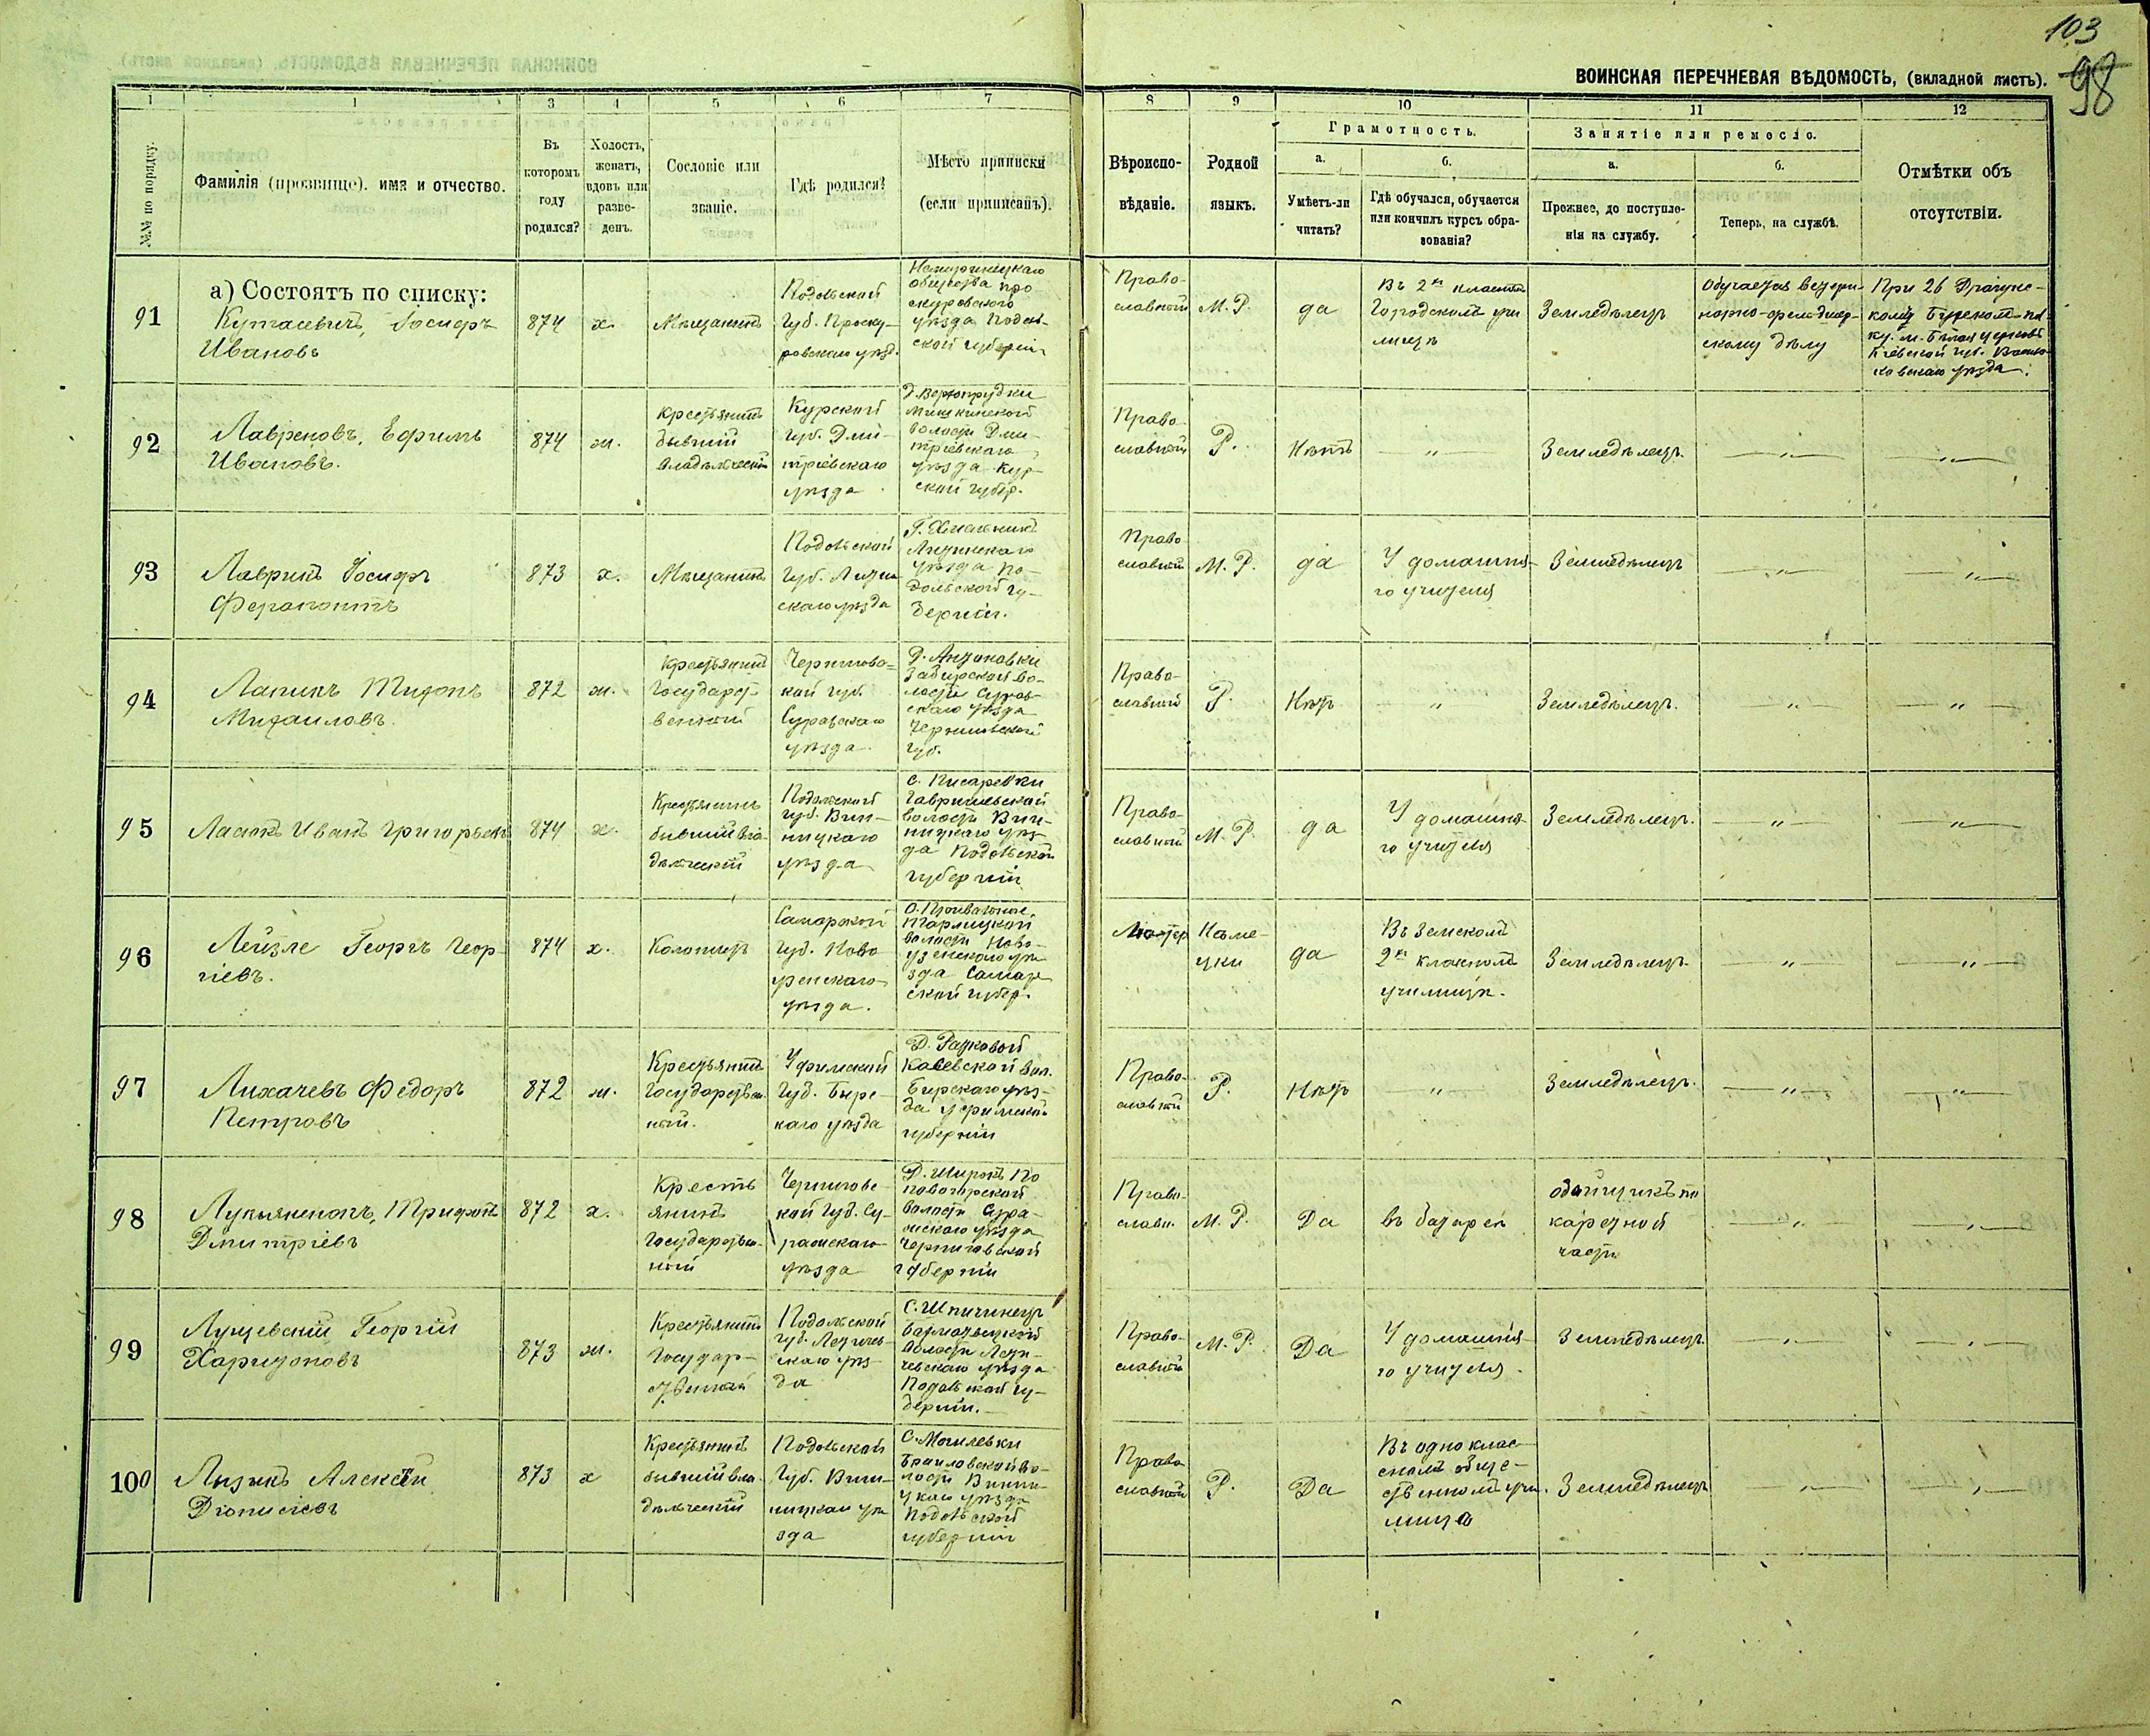 103
98
ВОИНСКАЯ ПЕРЕЧНЕВАЯ ВѢДОМОСТЬ, (вкладной листъ).
1 1 3 4 5 6 7 8 9 10 11 12
№№ по порядку.
Фамилія (прозвище). имя и отчество.
Въ
которомъ
году
родился?
Холостъ,
женатъ,
вдовъ или
разве-
денъ.
Сословіе или
званіе.
Гдѣ родился?
Мѣсто приписки
(если приписанъ).
Вѣроиспо-
вѣданіе.
Родной
языкъ.
Грамотность.
а.
Умѣетъ-ли
читать?
б.
Гдѣ обучался, обучается
или кончилъ курсъ обра-
зованія?
Занятіе или ремесло.
а.
Прежнее, до поступле-
нія на службу.
б.
Теперь, на службѣ.
Отмѣтки объ
отсутствіи.
а) Состоятъ по списку:
91
Іосифъ
Ивановъ
874
х.
Мѣщанинъ
Подольской
Губ. Проску-
ровскаго уѣзд.
общества про-
скуровскаго
уѣзда Подоль-
ской губерніи
Право-
славной
М. Р.
да
Въ 2хъ классн.
Городскомъ учи
лищѣ
Земледѣлецъ
Обучается ветери-
нарно-фельдшер-
скому дѣлу
При 26 Драгунс-
кому Бугском по
ку. м. Бѣлая Церковь
Кіевской губ. Василь-
ковскаго уѣзда.
92
Лавреновъ, Ефимъ
Ивановъ.
874
ж.
Крестьянинъ
бывшій
владѣльческій
Курской
губ. Дми-
тріевскаго
уѣзда
волости Дми-
тріевскаго
уѣзда Кур-
ской губер.
Право
славной
Р.
Нѣтъ
— " —
Земледѣлецъ.
— " —
— " —
93
Лаврикъ Іосифъ
Ферапонтъ
873
х.
Мѣщанинъ
Подольской
губ. Литин
скаго уѣзда
Г. Хмельникъ
Литинскаго
уѣзда По-
дольской гу-
берніи.
Право
славной
М. Р.
да
У домашня-
го учителя
Земледѣлецъ
— " —
" —
94
Лапинъ Тихонъ
Михаиловъ.
872
ж.
Крестьянинъ
Государст-
венный
Чернигово-
кой губ.
Суражскаго
уѣзда
Д. Антоновки
во-
лости Сураж-
скаго уѣзда
Черниговской
губ.
Право-
славной
Р.
Нѣтъ
"
Земледѣлецъ.
— " —
— " —
95
Ласюкъ Иванъ Григорьевъ
874
х.
Крестьянинъ
бывшій вла-
дѣльческій
Подольской
губ. Вин-
ницкаго
уѣзда
с. Писаревки
Гавришевской
волости Вин-
ницкаго уѣз-
да Подольской
губерніи
Право-
славной
М. Р.
да
У домашня-
го учителя
Земледѣлецъ.
— " —
— " —
96
Лейзле Георгъ Геор-
гіевъ.
874
х.
Колонистъ
Самарской
губ. Ново
узенскаго
уѣзда.
С. Привальное,
Тарлицкой
волости Ново-
узенскаго уѣ
зда Самар
ской губер.
Лютер
Нѣме-
цки
да
Въ Земскомъ
2хъ класномъ
училищѣ.
Земледѣлецъ.
— " —
— " —
97
Лихачевъ Федоръ
Петровъ
872
ж.
Крестьянинъ
Государствен-
ный.
Уфимской
Губ. Бирс-
каго уѣзда
вол.
Бирскаго уѣз-
да Уфимской
губерніи
Право-
славной
Р.
Нѣтъ
— " —
Земледѣлецъ.
— " —
— " —
98
Лукьяненокъ, Трифонъ
Дмитріевъ
872
х.
Кресть
янинъ
Государствен-
ный
Черниговс-
кой Губ. Су-
ражскаго
уѣзда
волости Сура-
жскаго уѣзда
Черниговской
губерніи
Право-
славн.
М. Р.
Да
въ батареѣ
по
каретной
части
— " —
— " —
99
Лущевскій Георгій
Харитоновъ
873
ж.
Крестьянинъ
Государ-
ственный
Подольской
губ. Летичев-
скаго уѣз-
да
С. Шпичинецъ
волости Лети-
чевскаго уѣзда
Подольской гу-
берніи.
Право-
славной
М. Р.
Да
У домашня-
го учителя.
Земледѣлецъ
— " —
— " —
100
Лызикъ Алексѣй
Діонисіевъ
873
х
Крестьянинъ
бывшій вла-
дѣльческій
Подольской
Губ. Вин-
ницкаго уѣ
зда
С. Могилевки
Браиловской во-
лости Винни-
цкаго уѣзда
Подольской
губерніи
Право-
славной
Р.
Да
Въ одноклас-
сномъ обще-
ственномъ учи-
лищѣ
Земледѣлецъ
— " —
— " —